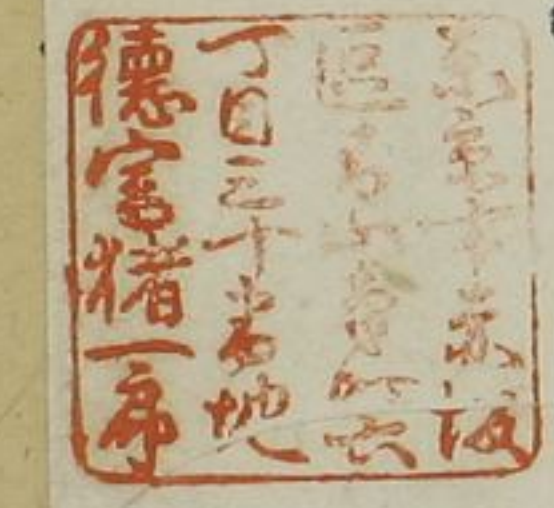 東京市赤坂
區青山南町六
丁目三十番地
德富猪一郎